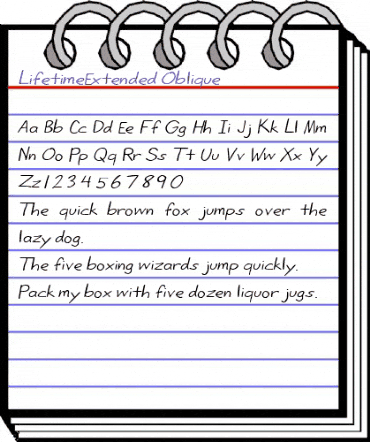 LifetimeExtended Oblique
Aa Bb Cc Dd Ee Ff Gg Hh Ii Jj Kk Ll Mm
Nn Oo Pp Qq Rr Ss Tt Uu Vv Ww Xx Yy
Zz 1 2 3 4 5 6 7 8 9 0
The quick brown fox jumps over the
lazy dog.
The five boxing wizards jump quickly.
Pack my box with five dozen liquor jugs.